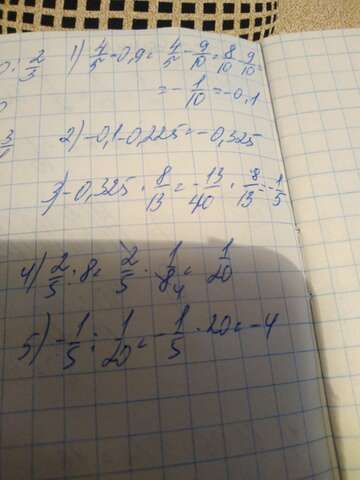 0 · 2/3
1) 4/5 - 0,9 = 4/5 - 9/10 = 8/10 - 9/10 =
= - 1/10 = -0,1
2) -0,1-0,225 = -0,325
3) -0,325 · 8/13 = - 13/40 · 8/13 = - 1/5
4) 2/5 : 8 = 2/5 · 1/8 4 = 1/20
5) - 1/5 : 1/20 = - 1/5 · 20 = -4